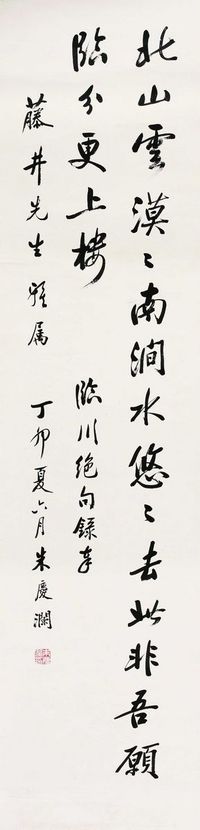 北山雲漠〻南澗水悠〻去此非吾願
臨分更上樓
臨川絕句錄奉
藤井先生雅属
丁卯夏六月朱慶瀾